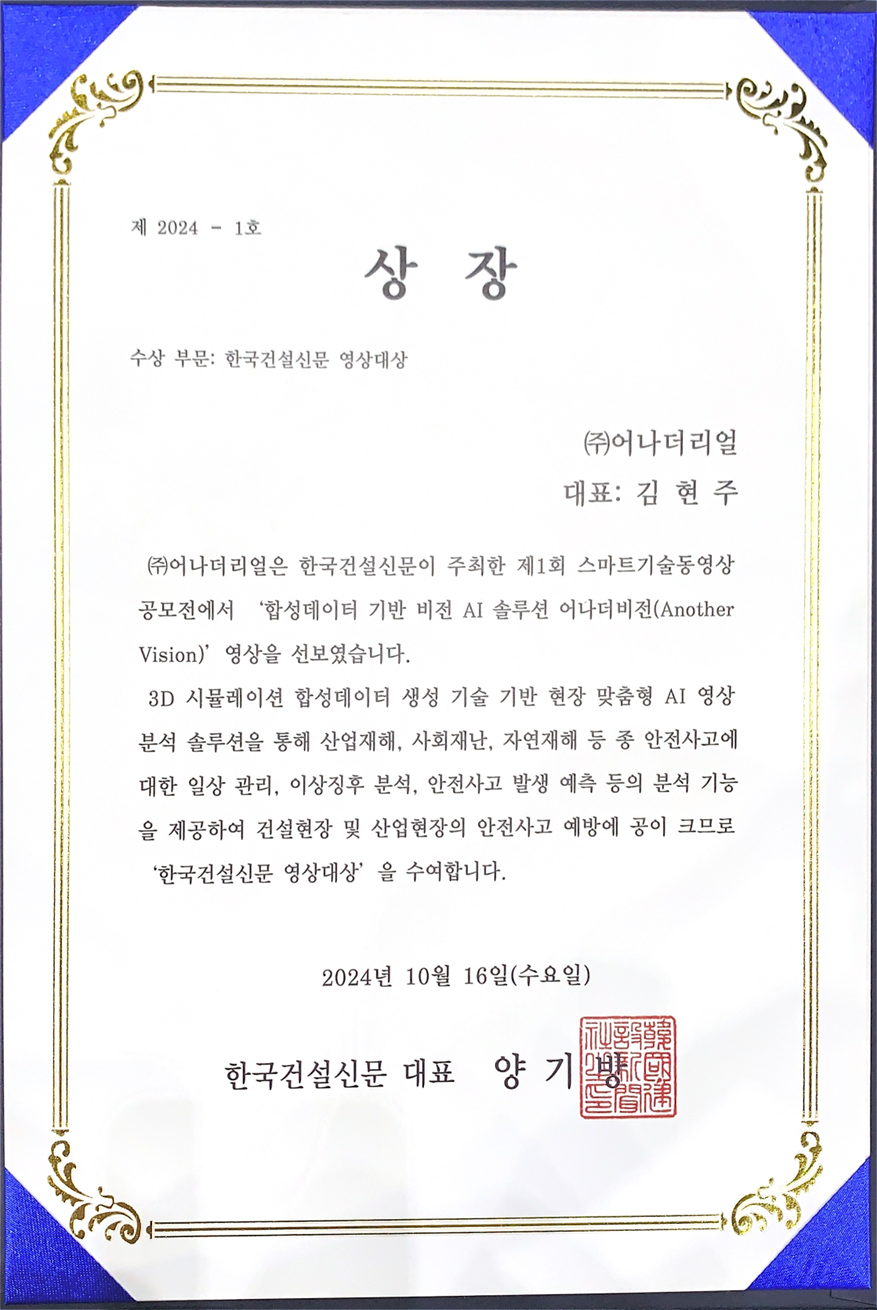 제 2024 - 1호
상 장
수상 부문: 한국건설신문 영상대상
㈜어나더리얼
대표: 김 현 주
㈜어나더리얼은 한국건설신문이 주최한 제1회 스마트기술동영상
공모전에서 ‘합성데이터 기반 비전 AI 솔루션 어나더비전(Another
Vision)’ 영상을 선보였습니다.
3D 시뮬레이션 합성데이터 생성 기술 기반 현장 맞춤형 AI 영상
분석 솔루션을 통해 산업재해, 사회재난, 자연재해 등 종 안전사고에
대한 일상 관리, 이상징후 분석, 안전사고 발생 예측 등의 분석 기능
을 제공하여 건설현장 및 산업현장의 안전사고 예방에 공이 크므로
‘한국건설신문 영상대상’을 수여합니다.
2024년 10월 16일(수요일)
한국건설신문 대표 양 기 방
韓國建
設新聞
社
印